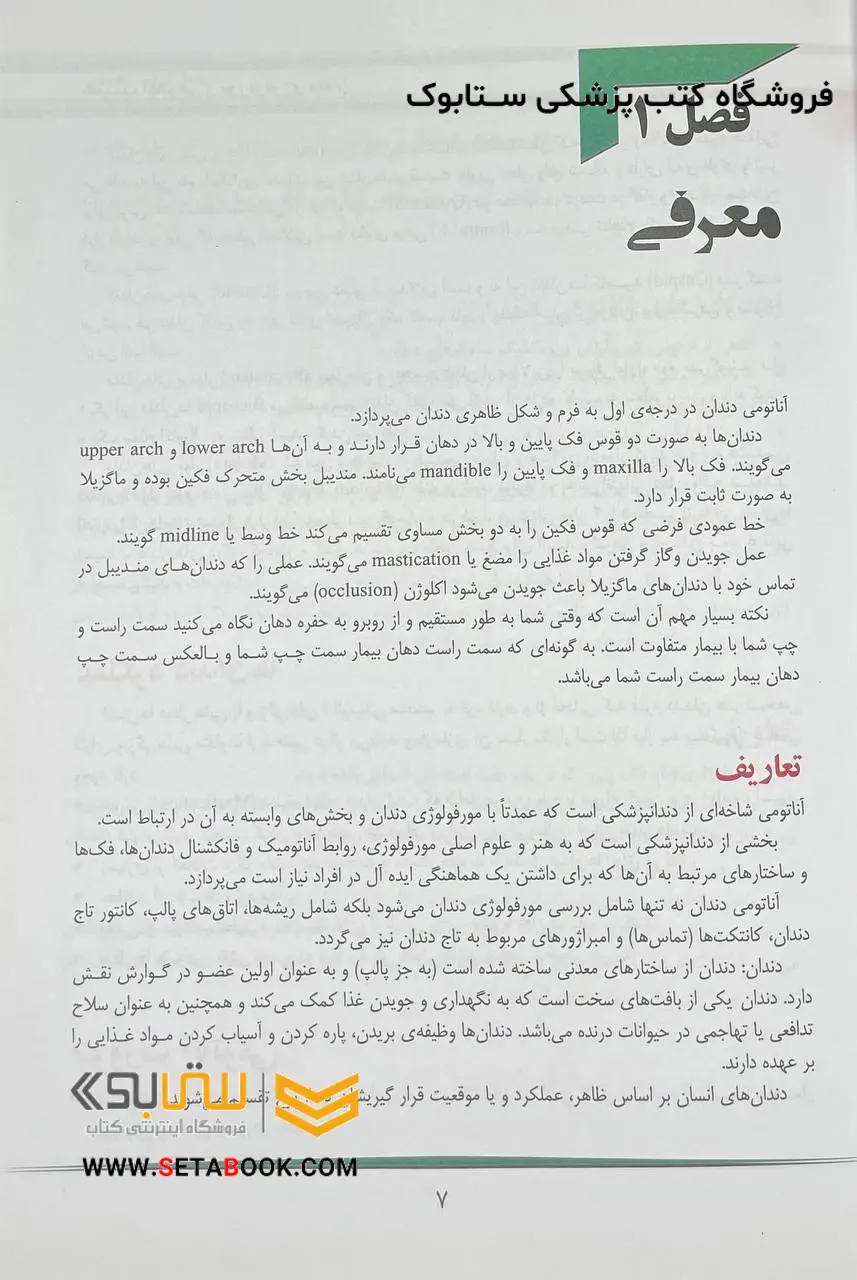 فروشگاه کتب پزشکی ستابوک
فصل ۱
معرفی
آناتومی دندان در درجه‌ی اول به فرم و شکل ظاهری دندان می‌پردازد.
دندان‌ها به صورت دو قوس فک پایین و بالا در دهان قرار دارند و به آن‌ها lower arch و upper arch
می‌گویند. فک بالا را maxilla و فک پایین را mandible می‌نامند. مندیبل بخش متحرک فکین بوده و ماگزیلا
به صورت ثابت قرار دارد.
خط عمودی فرضی که قوس فکین را به دو بخش مساوی تقسیم می‌کند خط وسط یا midline گویند.
عمل جویدن وگاز گرفتن مواد غذایی را مضغ یا mastication می‌گویند. عملی را که دندان‌های مندیبل در
تماس خود با دندان‌های ماگزیلا باعث جویدن می‌شود اکلوژن (occlusion) می‌گویند.
نکته بسیار مهم آن است که وقتی شما به طور مستقیم و از روبرو به حفره دهان نگاه می‌کنید سمت راست و
چپ شما با بیمار متفاوت است. به گونه‌ای که سمت راست دهان بیمار سمت چپ شما و بالعکس سمت چپ
دهان بیمار سمت راست شما می‌باشد.
تعاریف
آناتومی شاخه‌ای از دندانپزشکی است که عمدتاً با مورفولوژی دندان و بخش‌های وابسته به آن در ارتباط است.
بخشی از دندانپزشکی است که به هنر و علوم اصلی مورفولوژی، روابط آناتومیک و فانکشنال دندان‌ها، فک‌ها
و ساختارهای مرتبط به آن‌ها که برای داشتن یک هماهنگی ایده آل در افراد نیاز است می‌پردازد.
آناتومی دندان نه تنها شامل بررسی مورفولوژی دندان می‌شود بلکه شامل ریشه‌ها، اتاق‌های پالپ، کانتور تاج
دندان، کانتکت‌ها (تماس‌ها) و امبراژورهای مربوط به تاج دندان نیز می‌گردد.
دندان: دندان از ساختارهای معدنی ساخته شده است (به جز پالپ) و به عنوان اولین عضو در گوارش نقش
دارد. دندان یکی از بافت‌های سخت است که به نگهداری و جویدن غذا کمک می‌کند و همچنین به عنوان سلاح
تدافعی یا تهاجمی در حیوانات درنده می‌باشد. دندان‌ها وظیفه‌ی بریدن، پاره کردن و آسیاب کردن مواد غذایی را
بر عهده دارند.
دندان‌های انسان بر اساس ظاهر، عملکرد و یا موقعیت قرار تقسیم می‌شوند.
ستابوک
فروشگاه اینترنتی کتاب
WWW.SETABOOK.COM
۷